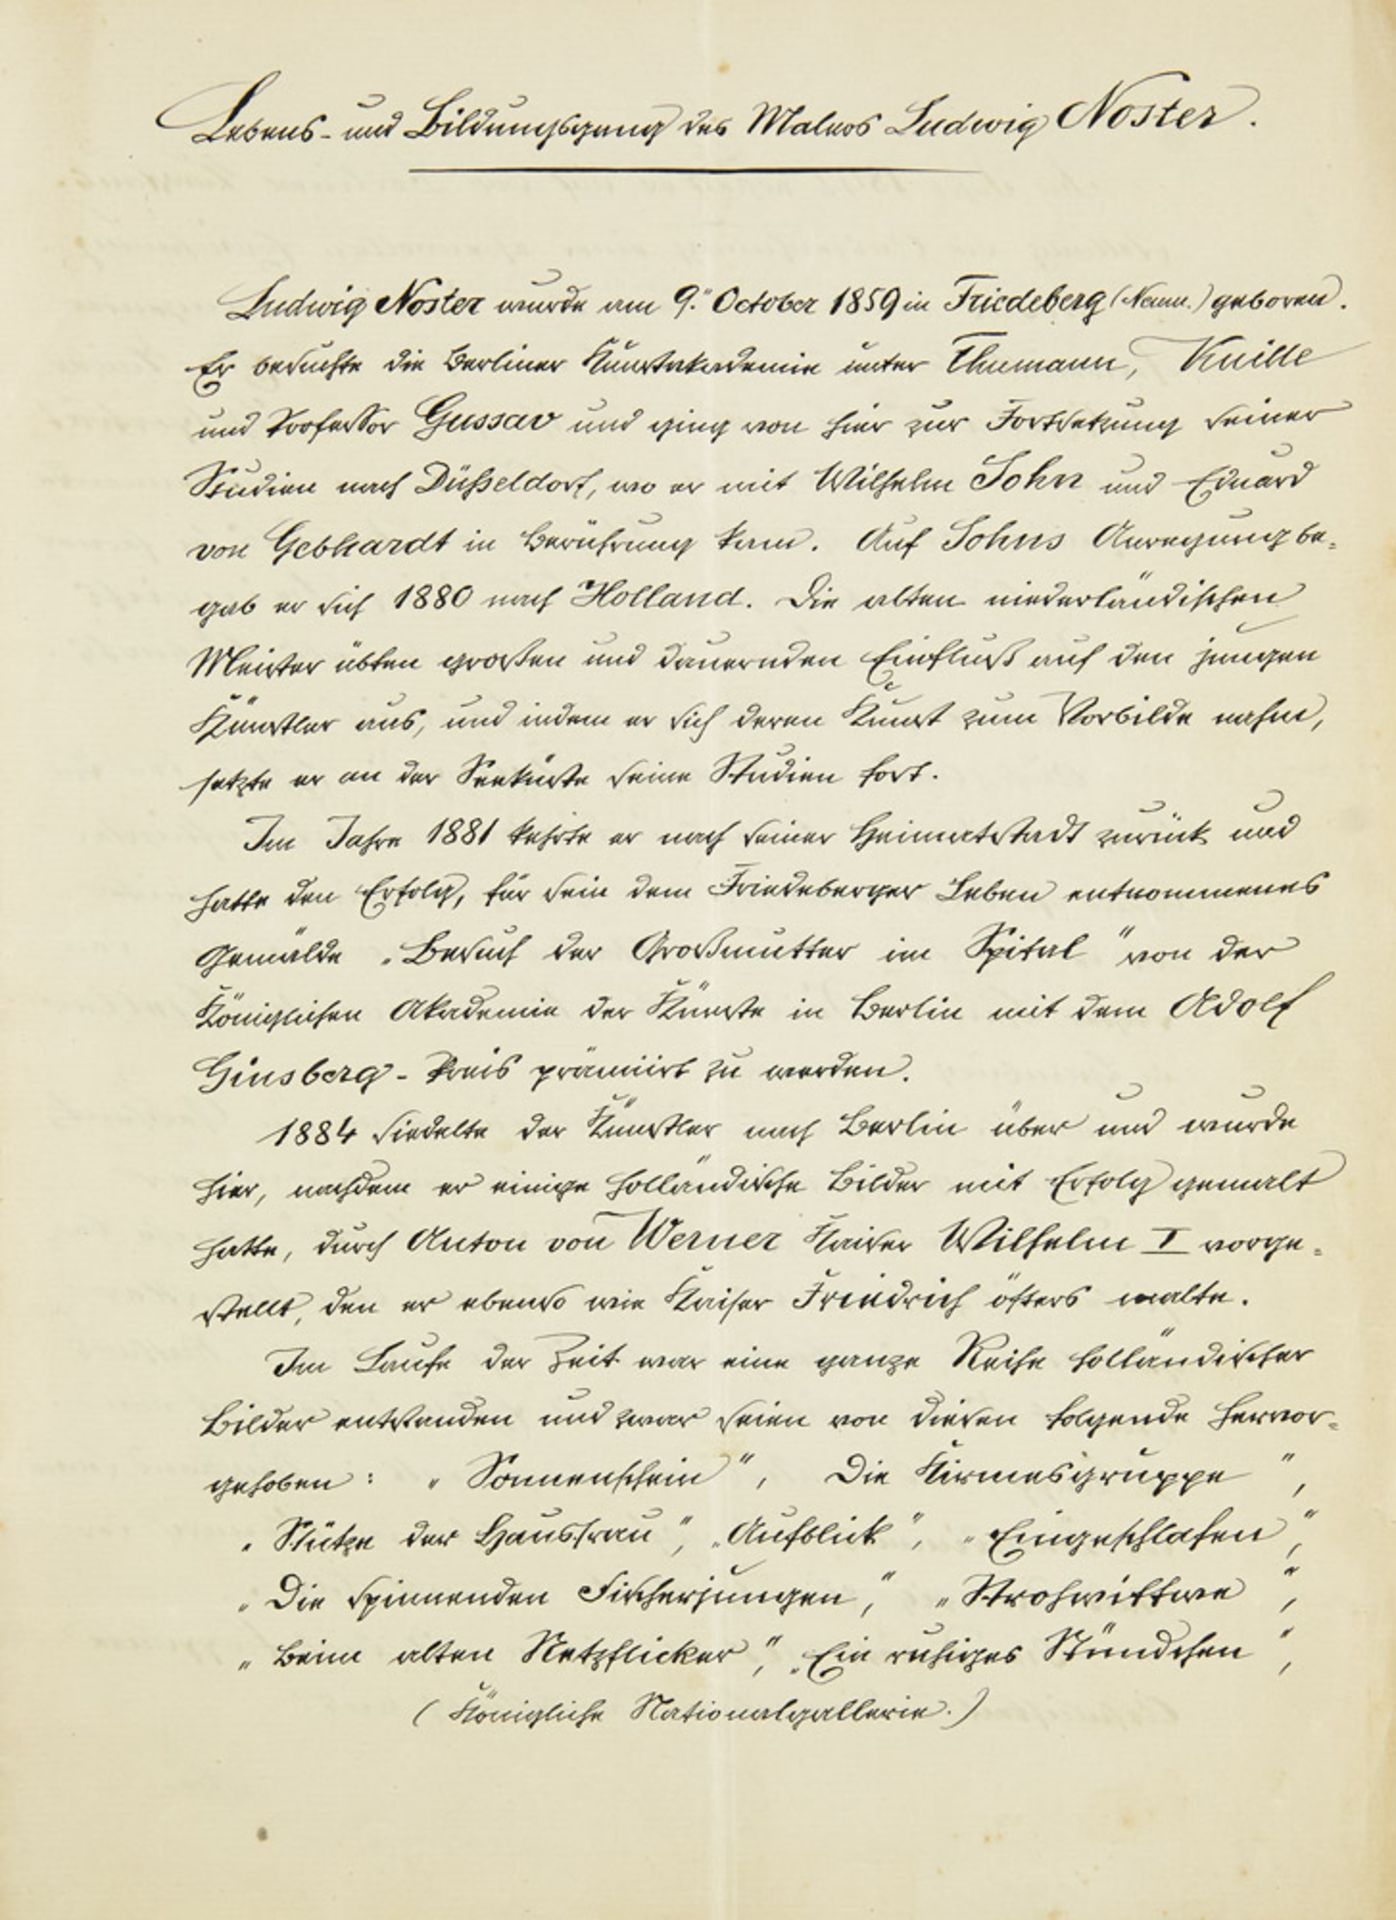 Lebens- und Bildungsgang des Malers Ludwig Noster.
Ludwig Noster wurde am 9. October 1859 in Friedeberg (Neum.) geboren.
Er besuchte die Berliner Kunstakademie unter Thumann, Knille
und Professor Gussav und ging von hier zur Fortsetzung seiner
Studien nach Düsseldorf, wo er mit Wilhelm Sohn und Eduard
von Gebhardt in Berührung kam. Auf Sohns Anregung be-
gab er sich 1880 nach Holland. Die alten niederländischen
Meister übten großen und dauernden Einfluß auf den jungen
Künstler aus, und indem er sich deren Kunst zum Vorbilde nahm,
setzte er an der Seeküste seine Studien fort.
Im Jahre 1881 kehrte er nach seiner Heimatstadt zurück und
hatte den Erfolg, für sein dem Friedeberger Leben entnommenes
Gemälde „Besuch der Großmutter im Spital" von der
Königlichen Akademie der Künste in Berlin mit dem Adolf
Ginsberg-Preis prämiirt zu werden.
1884 siedelte der Künstler nach Berlin über und wurde
hier, nachdem er einige holländische Bilder mit Erfolg gemalt
hatte, durch Anton von Werner Kaiser Wilhelm I vorge-
stellt, den er ebenso wie Kaiser Friedrich öfters malte.
Im Laufe der Zeit war eine ganze Reihe holländischer
Bilder entstanden und zwar seien von diesen folgende hervor-
gehoben: „Sonnenschein", Die Kirmesgruppe",
„Stütze der Hausfrau", „Aufblick", „Eingeschlafen",
„Die spinnenden Fischerjungen", „Strohwittwe",
„Beim alten Netzflicker", „Ein ruhiges Stündchen",
(Königliche Nationalgallerie.)